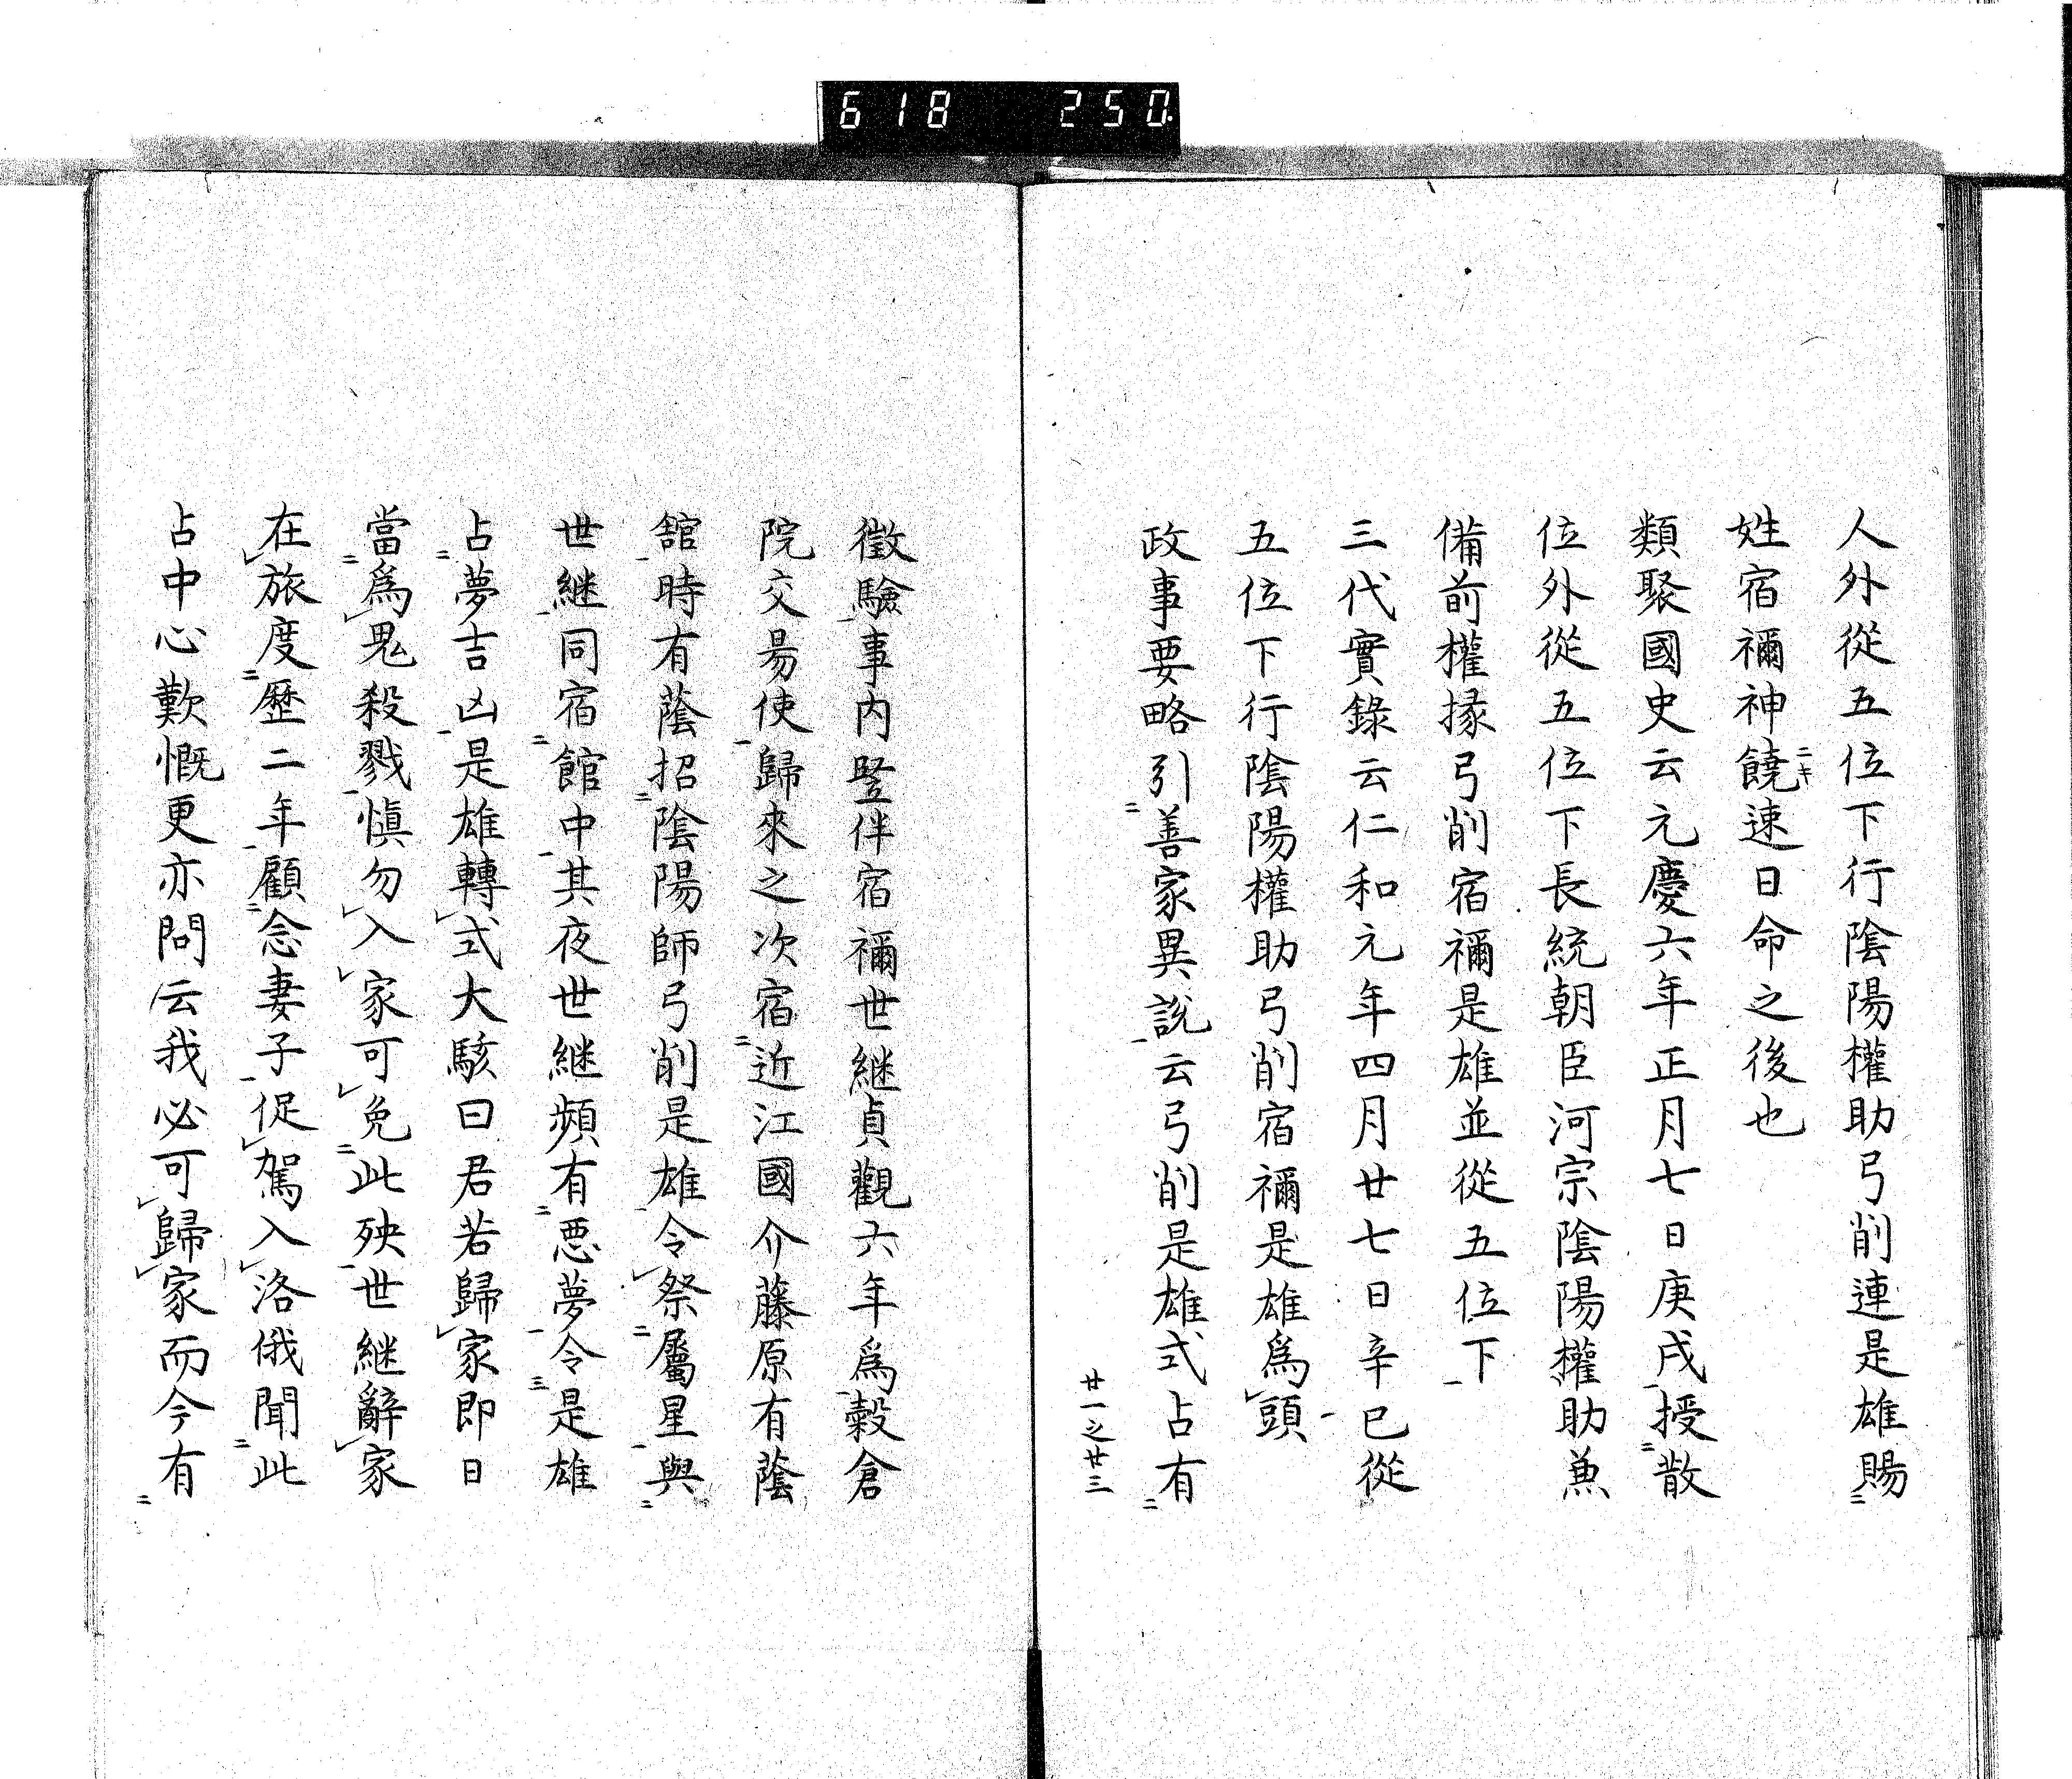 618 250
人外從五位下行陰陽權助弓削連是雄賜
姓宿禰神饒速日命之後也
類聚國史云元慶六年正月七日庚戌授散
位外從五位下長統朝臣河宗陰陽權助兼
備前權掾弓削宿禰是雄並從五位下
三代實錄云仁和元年四月廿七日辛巳從
五位下行陰陽權助弓削宿禰是雄爲頭
政事要略引善家異說云弓削是雄式占有
廿一之廿三
徵驗事内竪伴宿禰世継貞觀六年爲穀倉
院交易使歸來之次宿近江國介藤原有蔭
舘時有蔭招陰陽師弓削是雄令祭屬星與
世継同宿館中其夜世継頻有惡夢令是雄
占夢吉凶是雄轉式大駭曰君若歸家即日
當爲鬼殺戮愼勿入家可免此殃世継辭家
在旅度歷二年顧念妻子促駕入洛俄聞此
占中心歎慨更亦問云我必可歸家而今有